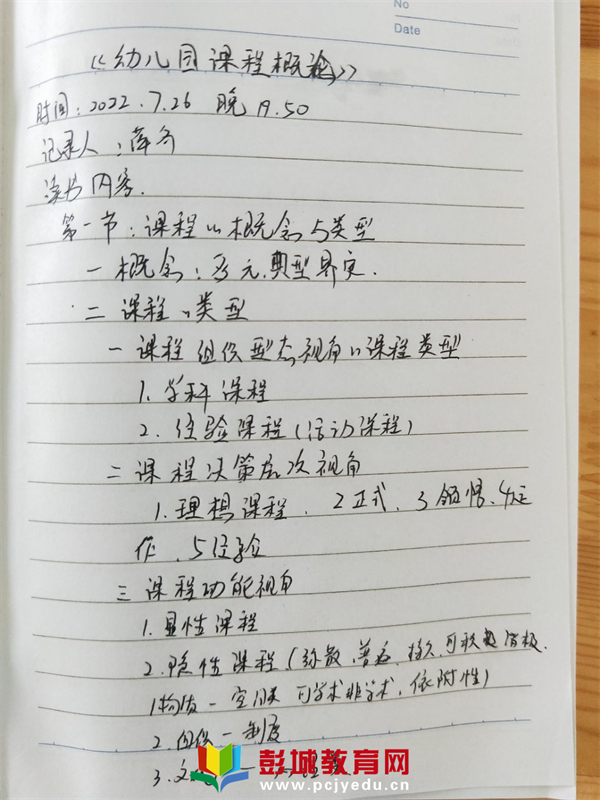 No
Date
《幼儿园课程概论》
时间:2022.7.26 晚 19.50
记录人:薛
读书内容.
第一节:课程的概念与类型
一概念:多元.典型界定.
二课程的类型
一课程组织型态视角的课程类型
1.学科课程
2.经验课程(活动课程)
二课程决策层次视角
1.理想课程. 2正式. 3领悟. 4运
作.5经验
三课程功能视角
1.显性课程
2.隐性课程(弥散.普遍.持久.可积极消极.
1物质一空间类 可学术非学术.依附性)
2.组织一制度
3.文
彭城教育网
www.pcjyedu.com